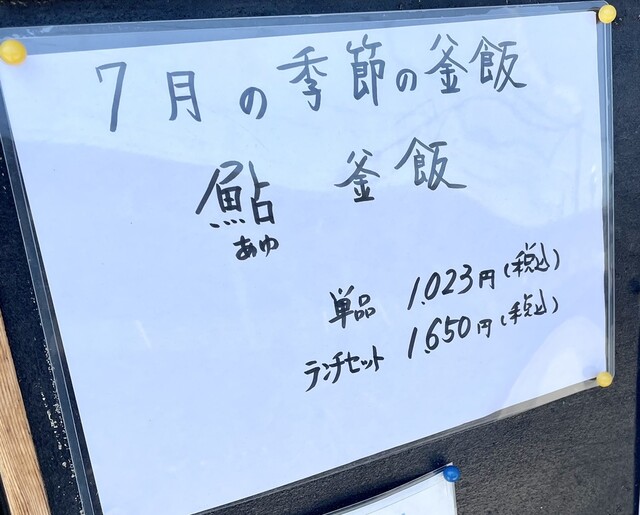 7月の季節の釜飯
鮎 釜飯
あゆ
単品 1,023円(税込)
ランチセット 1,650円(税込)